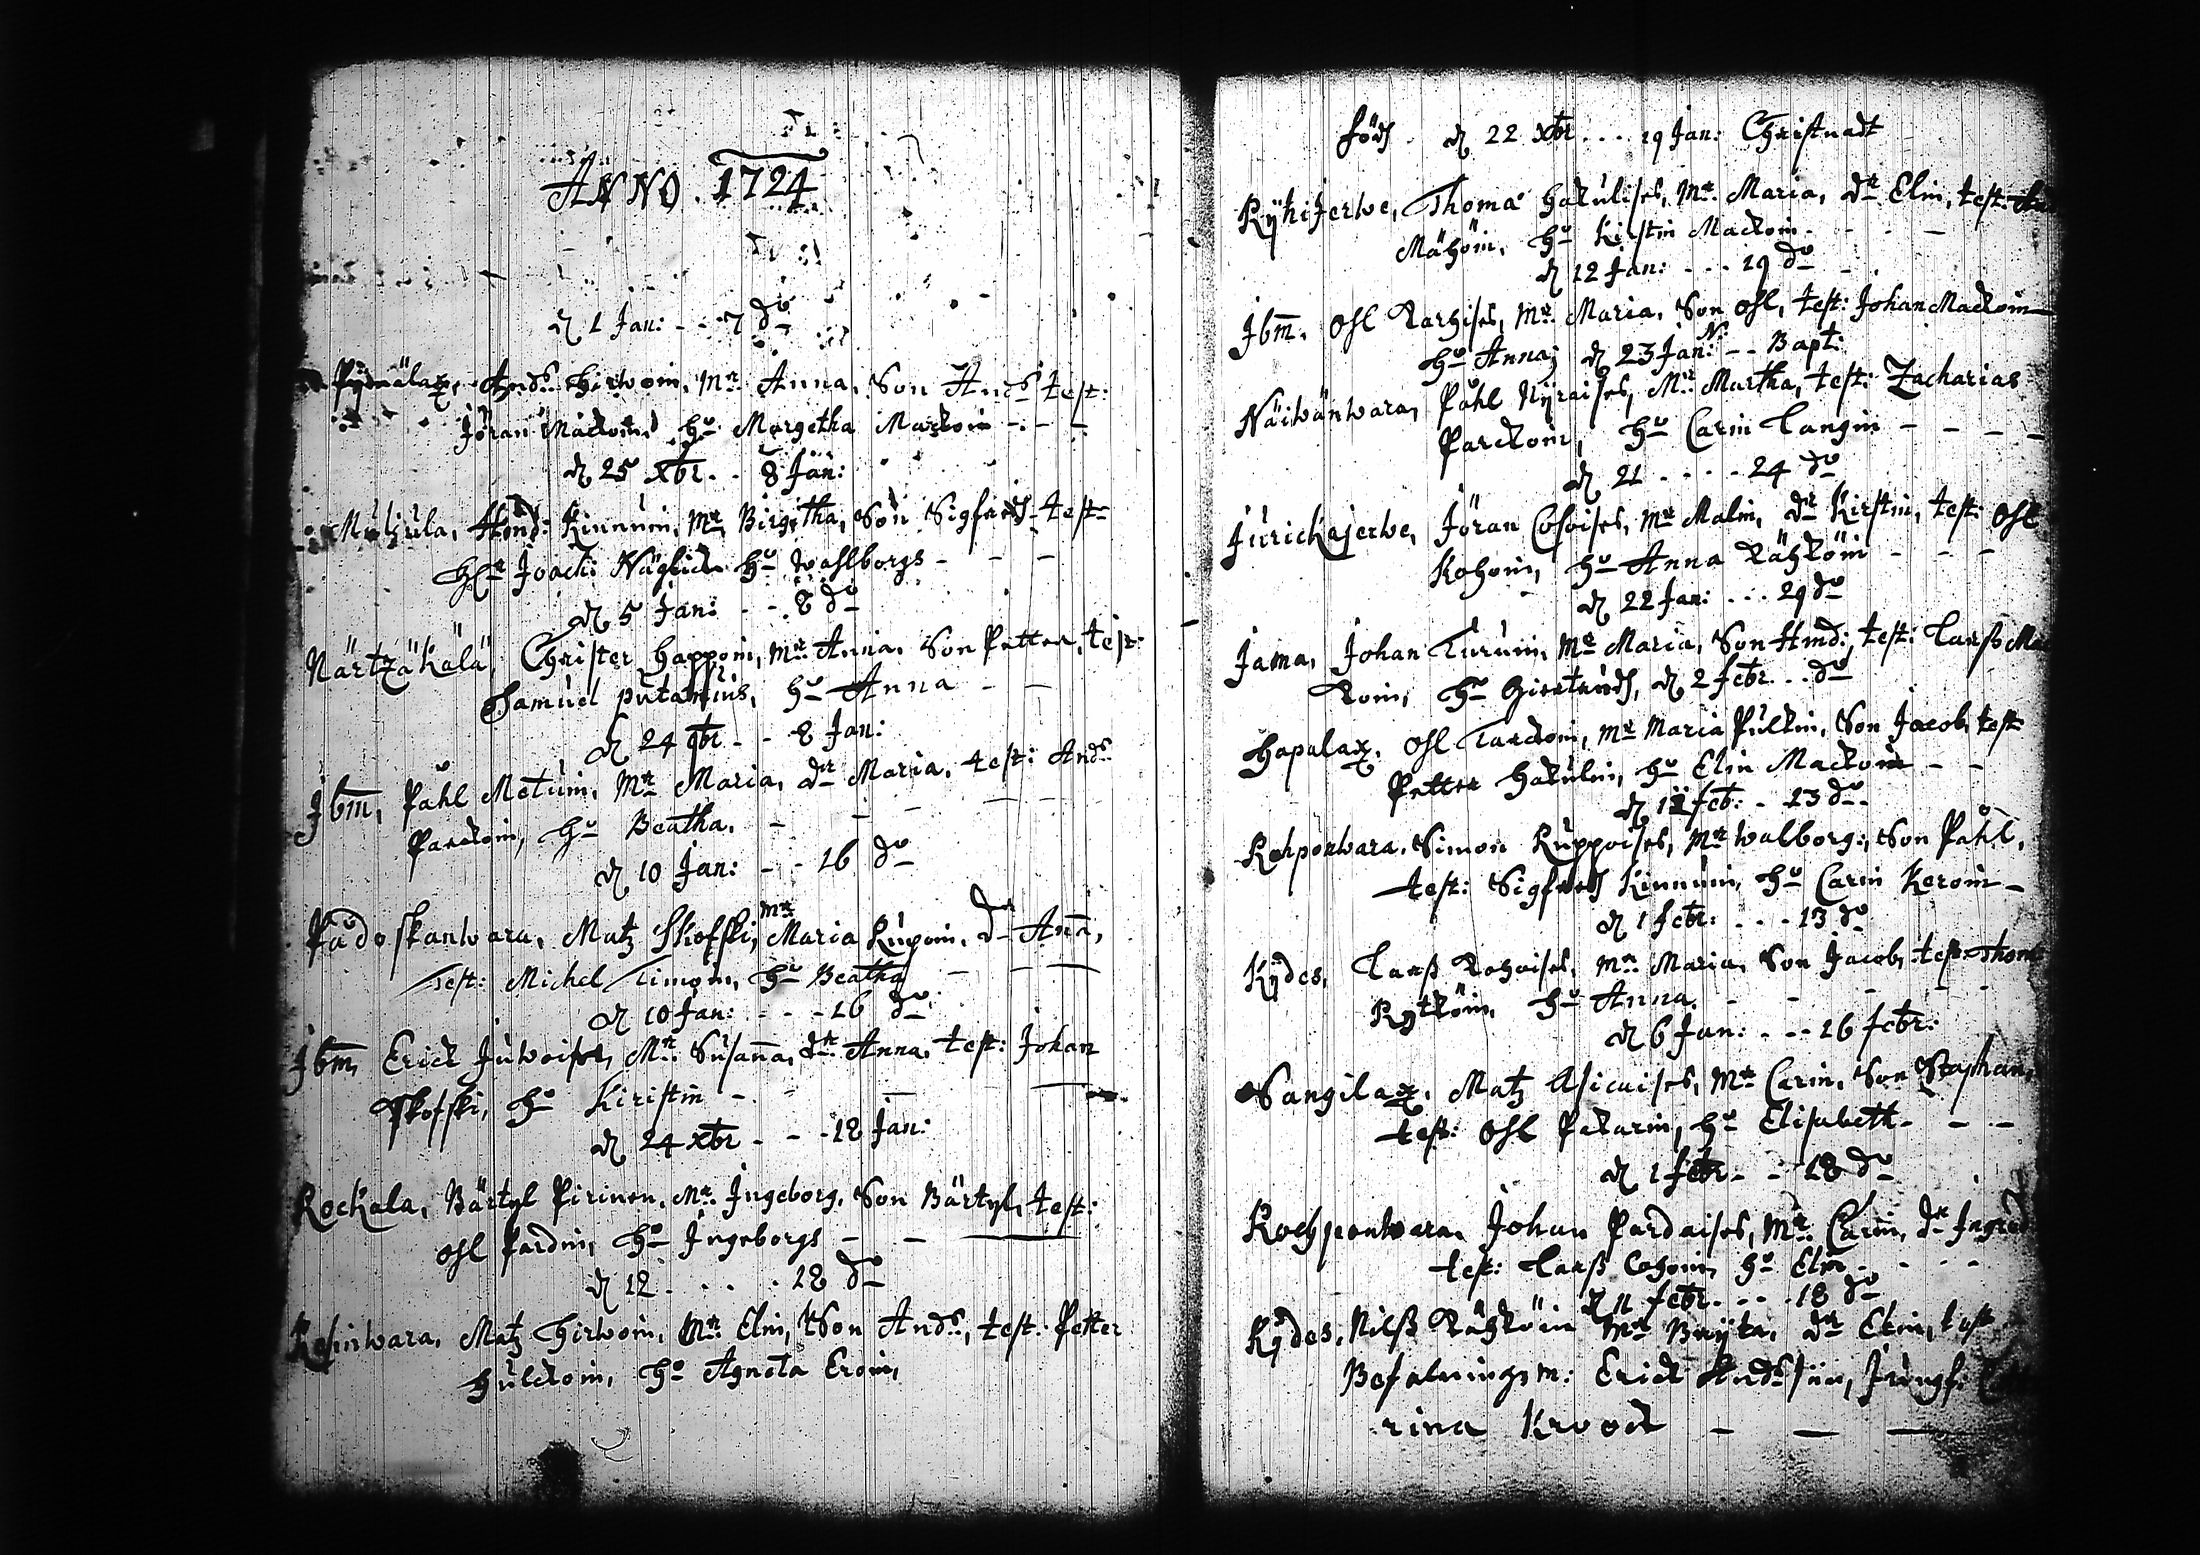 ANNO. 1724
d 1 Jan: - - 7 do
Pyrnälax, Ands Hirwoin, Mr Anna, Son Ands test:
Jöran Mackoin, Hu Margetha Mackoin - - -
d 25 xbr. - 8 Jan:
Muljula, Hend: Kinnuin, Mr Birgitha, Son Sigfredh test:
Joach: Näglick Hu Wahlborgs - - -
d 5 Jan: - - 8 do
Närtzäkälä Christer Happoin, Mr Anna. Son Petter, test:
Samuel Putanius, Hu Anna - -
d 24 xbr - - 8 Jan:
Jbm, Påhl Metuin, Mr Maria, dr Maria. test: Ands
Parckoin, Hu Beatha. - - - -
d 10 Jan: - - 16 do
Pådoskanwara, Matz Skofski, Mr Maria Rupoin. dr Anna,
Test: Michel Timoin, Hu Beatha - - -
d 10 Jan: - - - 16 do
Jbm, Erick Juwoises, Mr Susanna, dr Anna. test: Johan
Skofski, Hu Kiristin - - - -
d 24 xbr - - - 18 Jan:
Rockala, Bärtyl Pirinen, Mr Ingeborg, Son Bärtyl, test:
Ohl Pardin, Hu Ingeborgs - - -
d 12 . . . . 18 do
Rehinwara, Matz Hirwoin, Mr Elin, Son Ands, test: Petter
Hulckoin, Hu Agneta Eroin,
född d 22 xbr . . . 19 Jan: Christnadt
Ryhijerwe, Thoma Hakulises, Mr Maria, dr Elin, test:
Mähöin, Hu Kirstin Mackoin - - -
d 12 Jan: - - - 19 do
Jbm. Ohl Karhises, Mr Maria, Son Ohl, test: Johan Mackoin
Hu Anna; d 23 Jan: - - Bapt:
Näiwänwara, Påhl Nyraises, Mr Martha, test: Zacharias
Parckoin, Hu Carin Langin - - - -
d 21 - - - 24 do
Jurickajerwe, Jöran Cososises, Mr Malin, dr Kirstin, test: Ohl
Kohoin, Hu Anna Räkköin - - -
d 22 Jan: . . . 29 do
Jama, Johan Turuin, Mr Maria, Son Hind:, test: Larss Mac
koin, Hu Giertrudh, d 2 febr. . . do
Hapalax. Ohl Tarckoin, Mr Maria Pulkin, Son Jacob, test
Petter Hakulin, Hu Elin Mackoin - -
d 12 feb: - 13 do
Rohponwara. Simon Ruppoises, Mr Walborg:, Son Påhl,
test: Sigfredh Kinnuin, Hu Carin Keroin -
d 1 febr: - - - 13 do
Kydes, Larss Kohoises, Mr Maria, Son Jacob, test: Thom
Rytköin, Hu Anna. - - - -
d 6 Jan: - - - 16 febr:
Sangilax. Matz Asicaises, Mr Carin, Son Staphan,
test: Ohl Pekarin, Hu Elisabeth - - -
d 1 febr - - 18 do
Rochponwara, Johan Pardaises, Mr Carin, dr Ingredh
test: Larss Cohoin, Hu Elin - - - -
d 11 febr. - - - 18 do
Kydes, Nilss Räkköin Mr Bryta, dr Elin, test
Befalningzm: Erick Andsson, Jungf:
rina Krook - - -